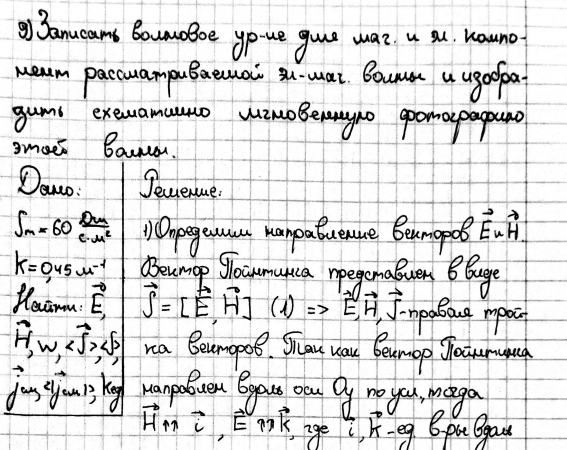 9) Записать волновое ур-ие для маг. и эл. компо-
нент рассматриваемой эл-маг. волны и изобра-
зить схематично мгновенную фотографию
этой волны.
Дано:
Sm = 60 Дж/с·м²
k = 0,45 м⁻¹
Найти: E⃗,
H⃗, w, <S⃗>, <S>,
j⃗см, <|j⃗см|>, Kед
Решение:
1) Определим направление векторов E⃗ и H⃗.
Вектор Пойнтинга представлен в виде
S⃗ = [E⃗, H⃗] (1) => E⃗, H⃗, S⃗ - правая трой-
ка векторов. Так как вектор Пойнтинга
направлен вдоль оси Oy по усл, тогда
H⃗ ↑↑ i⃗, E⃗ ↑↑ k⃗, где i⃗, k⃗ - ед в-ры вдоль